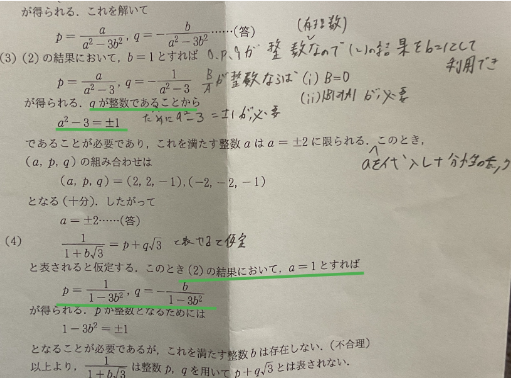 が得られる．これを解いて
p = a/(a²−3b²), q = −b/(a²−3b²) ……(答)
(有理数)
(3) (2)の結果において，b = 1とすれば a, p, qが整数なので(2)の結果をb=1として
利用でき
p = a/(a²−3), q = −1/(a²−3) B/A が整数ならば (i) B=0
が得られる．qが整数であることから (ii) |B|≧|A| が必要
a²−3 = ±1 ためにa²−3=±1が必要
であることが必要であり，これを満たす整数aはa = ±2に限られる．このとき，
aを代入し十分性の
(a, p, q)の組み合わせは
(a, p, q) = (2, 2, −1), (−2, −2, −1)
となる(十分)．したがって
a = ±2……(答)
(4) 1/(1+b√3) = p+q√3 と表せると仮定
と表されると仮定する，このとき(2)の結果において，a = 1とすれば
p = 1/(1−3b²), q = −b/(1−3b²)
が得られる．pが整数となるためには
1−3b² = ±1
となることが必要であるが，これを満たす整数bは存在しない．(不合理)
以上より，1/(1+b√3) は整数p, qを用いてp+q√3とは表されない．